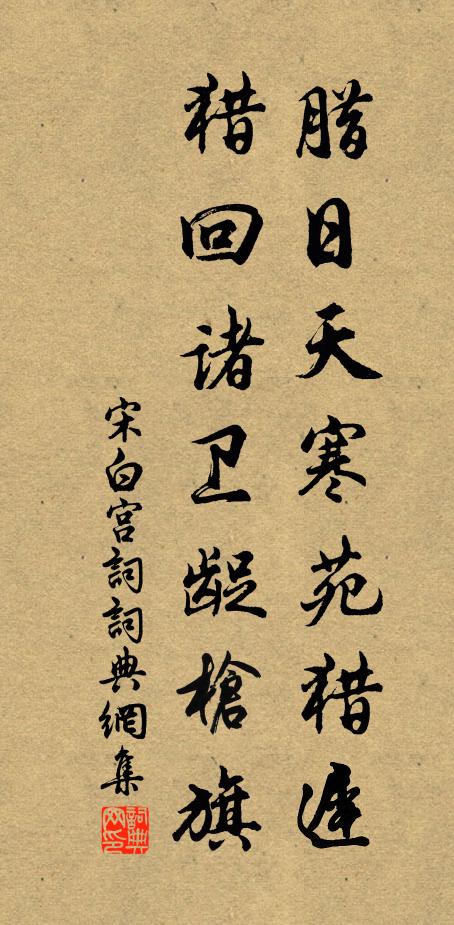 腊日天寒苑猎遲
猎回诸卫龊槍旗
宋白宫詞詞典網集
詞典网印